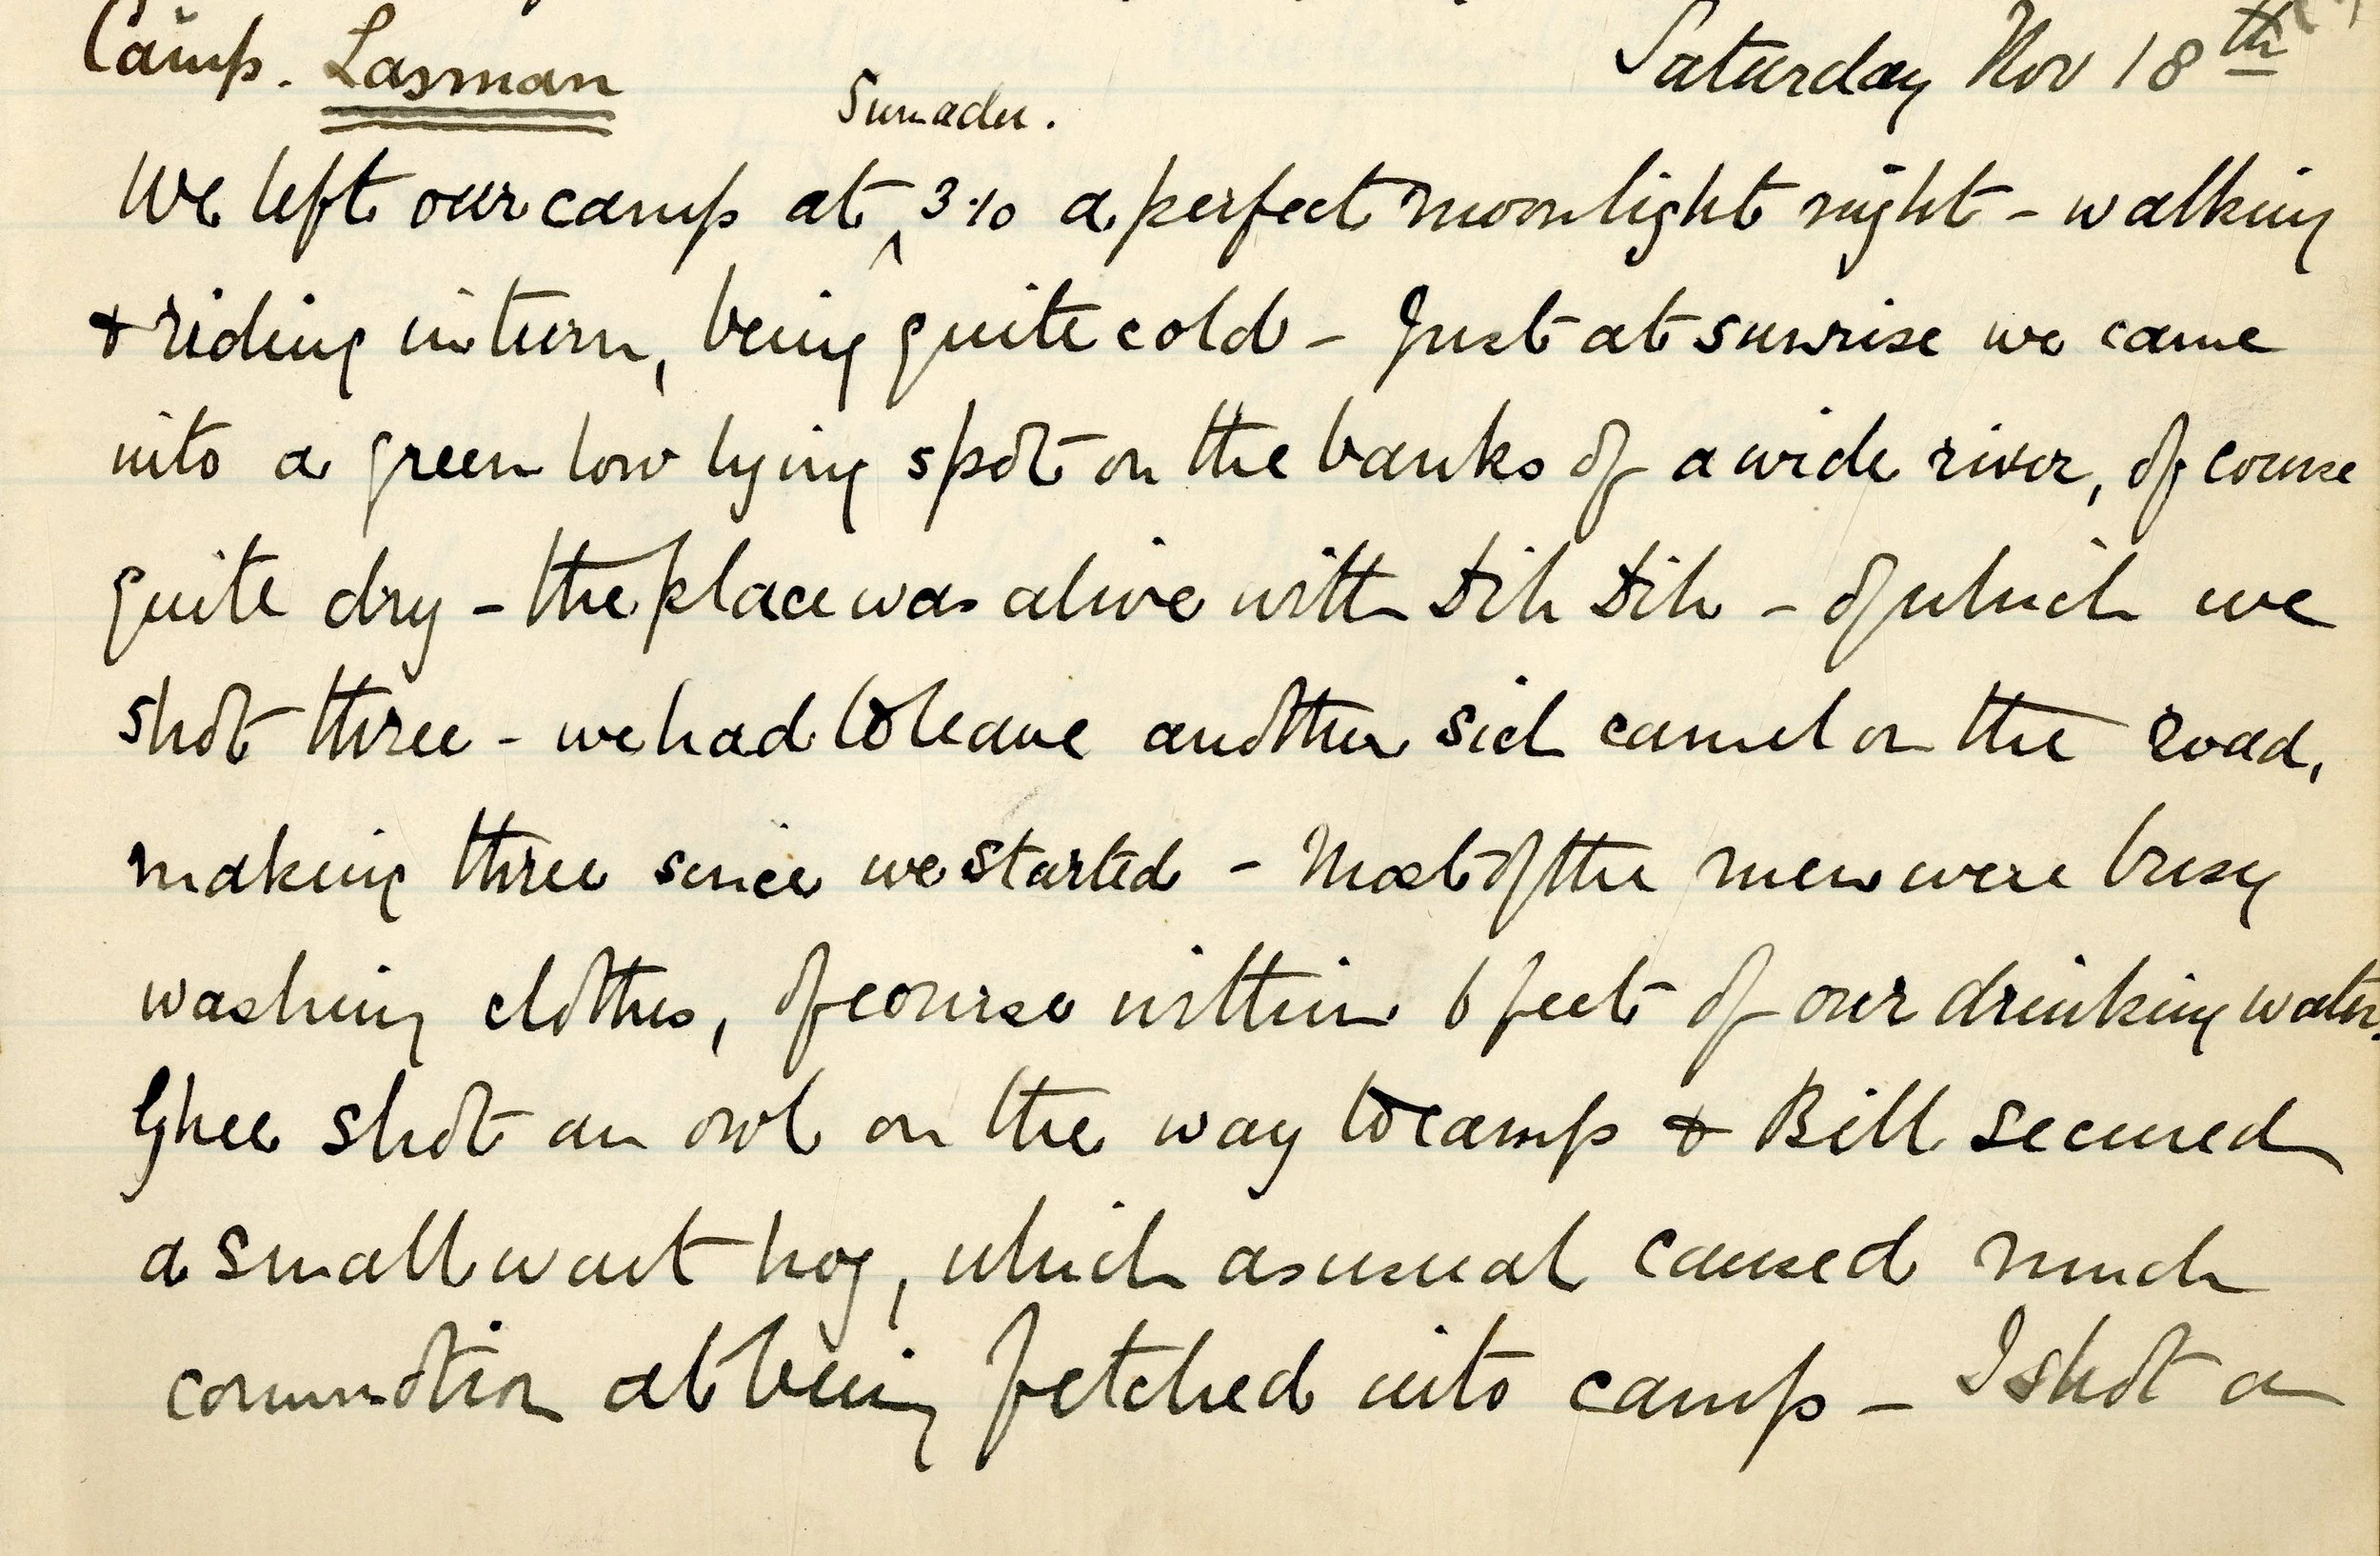 Camp. Lasman
Saturday Nov 18th
Sumadu.
We left our camp at ^ 3.10 a perfect moonlight night - walking
& riding in turn, being quite cold - Just at sunrise we came
into a green low lying spot on the banks of a wide river, of course
quite dry - the place was alive with Dik Dik - of which we
shot three - we had to leave another sick camel on the road,
making three since we started - Most of the men were busy
washing clothes, of course within 6 feet of our drinking water.
Ghee shot an owl on the way to camp & Bill secured
a small wart hog, which as usual caused much
commotion at being fetched into camp - I shot a